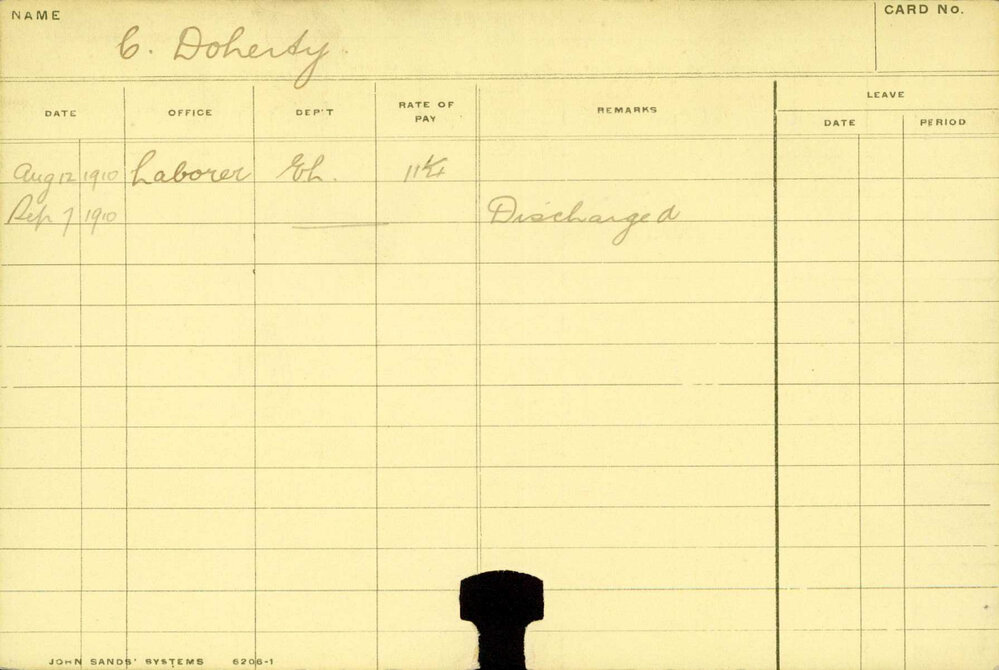 NAME C. Doherty.
CARD NO.
DATE OFFICE DEP'T RATE OF PAY REMARKS LEAVE
DATE PERIOD
Aug 12 1910 Laborer Eh. 11
Sep 7 1910 Discharged
JOHN SANDS' SYSTEMS 6206-1